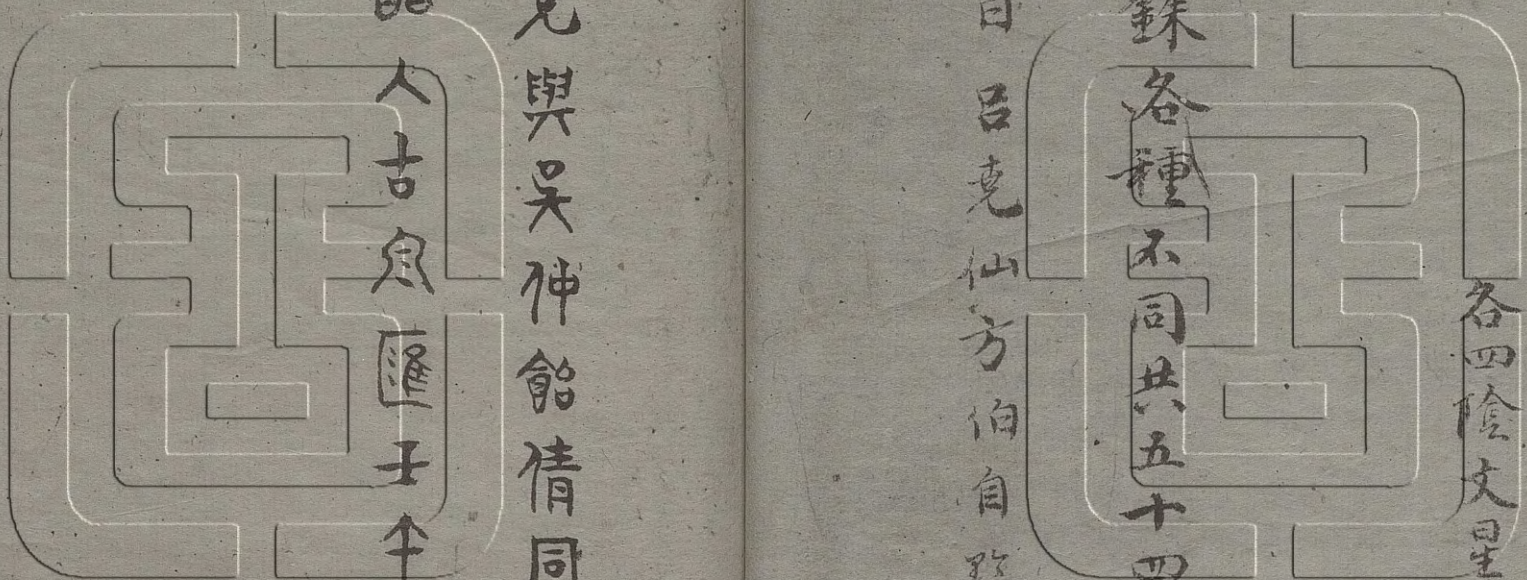 各四陰文星
銖各種不同共五十四
日呂堯仙方伯自黔
兄與吳仲飴倩同
人古泉匯壬午